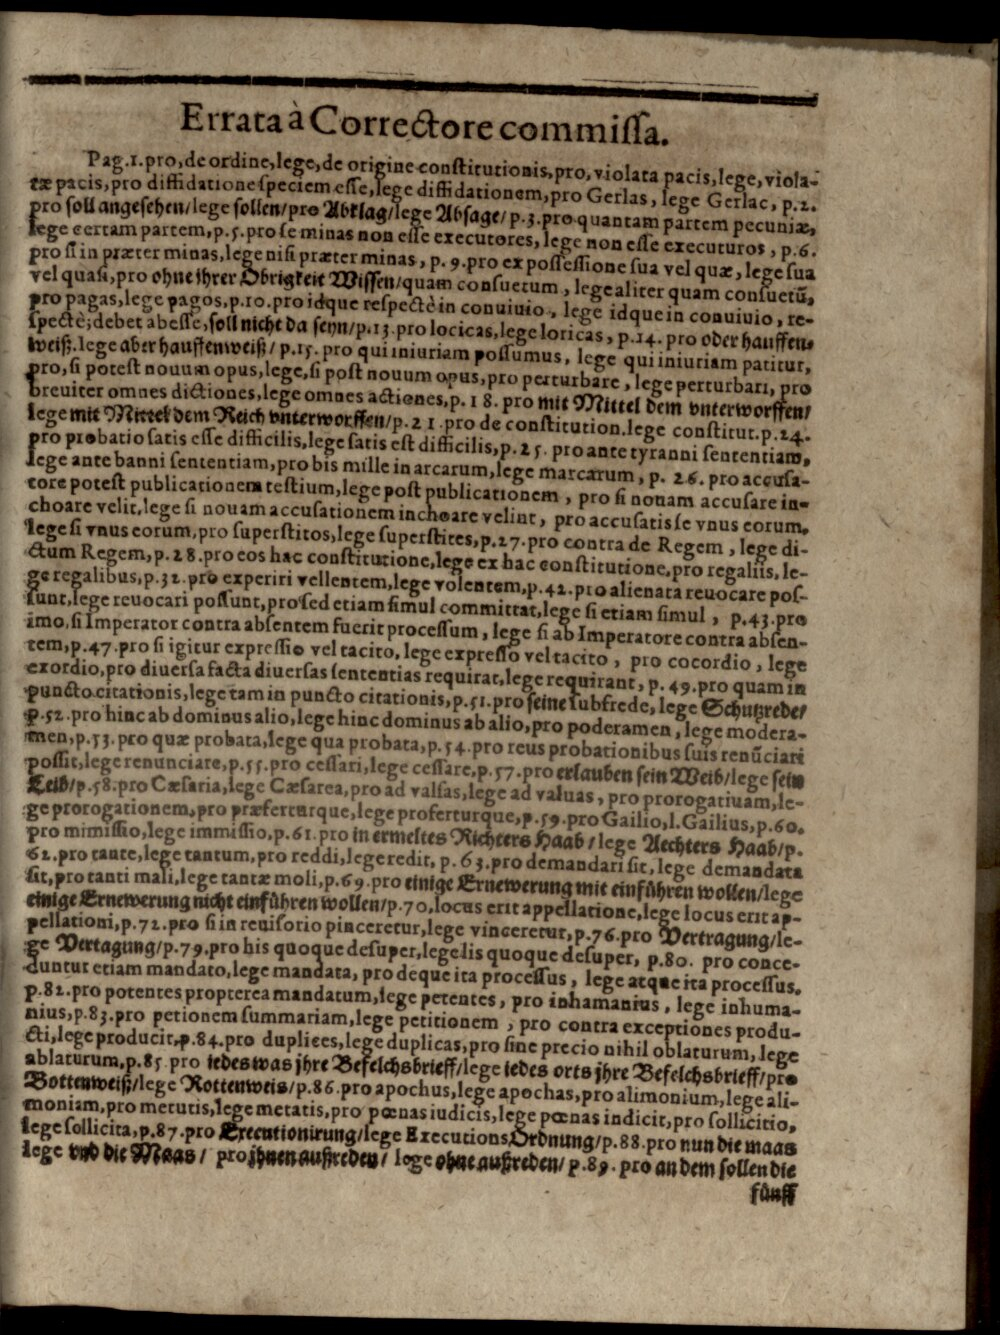 Errata à Correctore commissa.
Pag.1.pro,de ordine,lege,de origine constitutionis,pro,violata pacis,lege,viola-
tæ pacis,pro diffidatione speciem esse,lege diffidationem,pro Gerlas, lege Gerlac, p.2.
pro soll angesehen/lege sollen/pro Abklag/lege Absage/ p.3.pro quantam partem pecuniæ,
lege certam partem,p.5.pro se minas non esse executores, lege non esse executuros , p.6.
pro si in præter minas,lege nisi præter minas , p. 9.pro ex possessione sua vel quæ, lege sua
vel quasi,pro ohne ihrer Obrigkeit Wissen/quam consuetum , lege aliter quam consuetũ,
pro pagas,lege pagos,p.10.pro idque respectè in conuiuio , lege idque in conuiuio, re-
spectè;debet abesse,soll nicht da seyn/p.13.pro locicas,lege loricas, p.14. pro oder hauffen-
weiß.lege aber hauffenweiß/ p.15. pro qui iniuriam possumus, lege qui iniuriam patitur,
pro,si potest nouum opus,lege,si post nouum opus,pro perturbare , lege perturbari, pro
breuiter omnes dictiones,lege omnes actiones,p. 18. pro mit Mittel dem vnterworffen/
lege mit Mittel dem Reich vnterworffen/p.21.pro de constitution.lege constitut.p.24.
pro probatio satis esse difficilis,lege satis est difficilis,p.25. pro ante tyranni sententiam,
lege ante banni sententiam,pro bis mille in arcarum,lege marcarum, p. 26. pro accusa-
tore potest publicationem testium,lege post publicationem , pro si nouam accusare in-
choare velit,lege si nouam accusationem inchoare velint, pro accusatis se vnus eorum,
lege si vnus eorum,pro superstitos,lege superstites,p.27.pro contra de Regem , lege di-
ctum Regem,p.28.pro eos hac constitutione,lege ex hac constitutione,pro regaliis, le-
ge regalibus,p.32.pro experiri vellentem,lege volentem,p.42.pro alienata reuocare pos-
sunt,lege reuocari possunt,pro sed etiam simul committat,lege si etiam simul , p.43.pro
imo,si Imperator contra absentem fuerit processum , lege si ab Imperatore contra absen-
tem,p.47.pro si igitur expressio vel tacito, lege expresso vel tacito , pro cocordio , lege
exordio,pro diuersa facta diuersas sententias requirat,lege requirant, p. 49.pro quam in
puncto citationis,lege tam in puncto citationis,p.51.pro seine subfrede, lege Schutzrede/
p.52.pro hinc ab dominus alio,lege hinc dominus ab alio,pro poderamen, lege modera-
men,p.53.pro quæ probata,lege qua probata,p.54.pro reus probationibus suis renũciari
possit,lege renunciare,p.55.pro cessari,lege cessare,p.57.pro erlauben sein Weib/lege sein
Leib/p.58.pro Cæsaria,lege Cæsarea,pro ad valsas,lege ad valuas, pro prorogatiuam,le-
ge prorogationem,pro præferturque,lege proferturque,p.59.pro Gailio,l.Gailius,p.60.
pro mimissio,lege immissio,p.61.pro in ermeltes Richters Haab/ lege Aechters Haab/p.
62.pro tante,lege tantum,pro reddi,lege redit, p.63.pro demandari sit,lege demandata
sit,pro tanti mali,lege tantæ moli,p.69.pro einige Ernewerung mit einführen wollen/lege
einige Ernewerung nicht einführen wollen/p.70,locus erit appellatione,lege locus erit ap-
pellationi,p.72.pro si in reuisorio pinceretur,lege vinceretur,p.76.pro Vertragung/le-
ge Vertagung/p.79.pro his quoque desuper,lege lis quoque desuper, p.80. pro conce-
duntur etiam mandato,lege mandata, pro deque ita processus, lege atque ita processus.
p.82.pro potentes propterea mandatum,lege petentes, pro inhamanius , lege inhuma-
nius,p.83.pro petionem summariam,lege petitionem , pro contra exceptiones produ-
cti,lege producit,p.84.pro duplices,lege duplicas,pro sine precio nihil oblaturum, lege
ablaturum,p.85 pro iedes was jhre Befelchsbrieff/lege iedes orts jhre Befelchsbrieff/pro
Bottenweiß/lege Rottenweis/p.86.pro apochus,lege apochas,pro alimonium,lege ali-
moniam,pro metutis,lege metatis,pro pœnas iudicis,lege pœnas indicit,pro sollicitio,
lege sollicita,p.87.pro Executionirung/lege Executions Ordnung/p.88.pro nun die maas
lege vnd die Maas/ pro jhnen außreden/ lege ohne außreden/ p.89. pro an dem sollen die
fünff